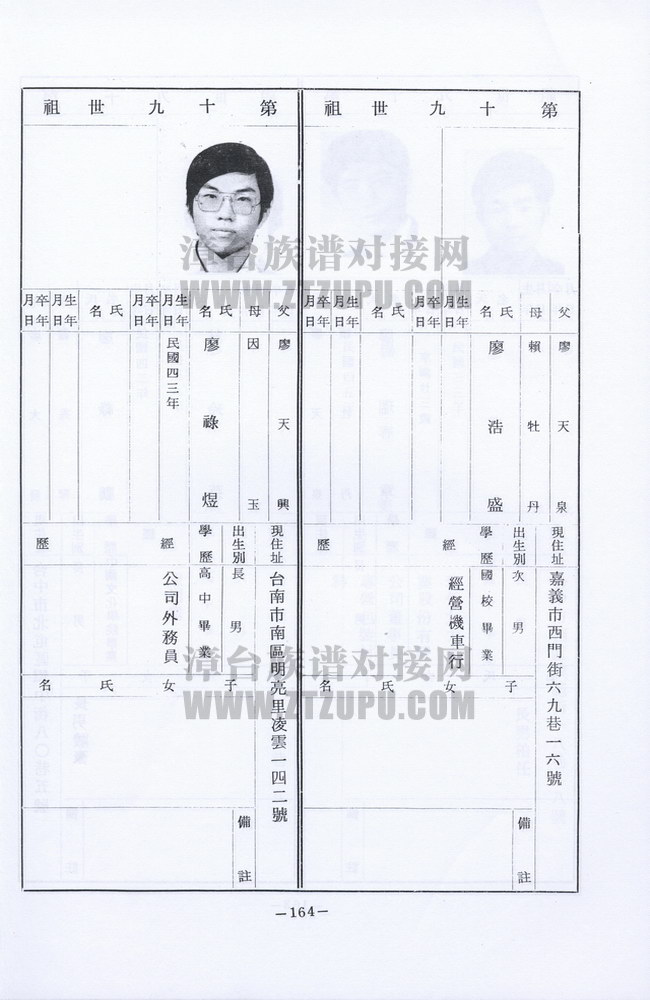 第十九世祖
父 廖天泉
母 賴牡丹
氏名 廖浩盛
生年月日
卒年月日
氏名
生年月日
卒年月日
現住址 嘉義市西門街六九巷一六號
出生別 次男
學歷 國校畢業
經歷 經營機車行
子女氏名
備註
第十九世祖
父 廖天興
母 因玉
氏名 廖祿煜
生年月日 民國四三年
卒年月日
氏名
生年月日
卒年月日
現住址 台南市南區明亮里凌雲一四二號
出生別 長男
學歷 高中畢業
經歷 公司外務員
子女氏名
備註
—164—
漳台族谱对接网
WWW.ZTZUPU.COM
漳台族谱对接网
WWW.ZTZUPU.COM